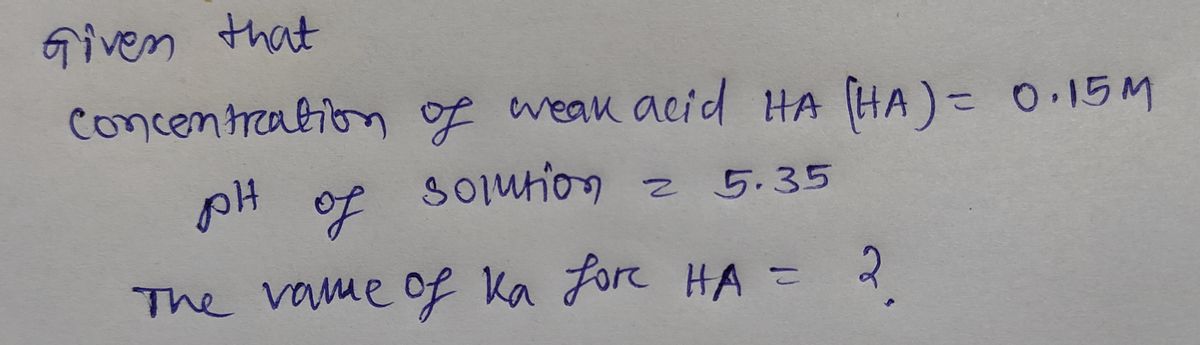 Given that
concentration of weak acid HA (HA) = 0.15M
pH of solution = 5.35
The value of Ka for HA = ?